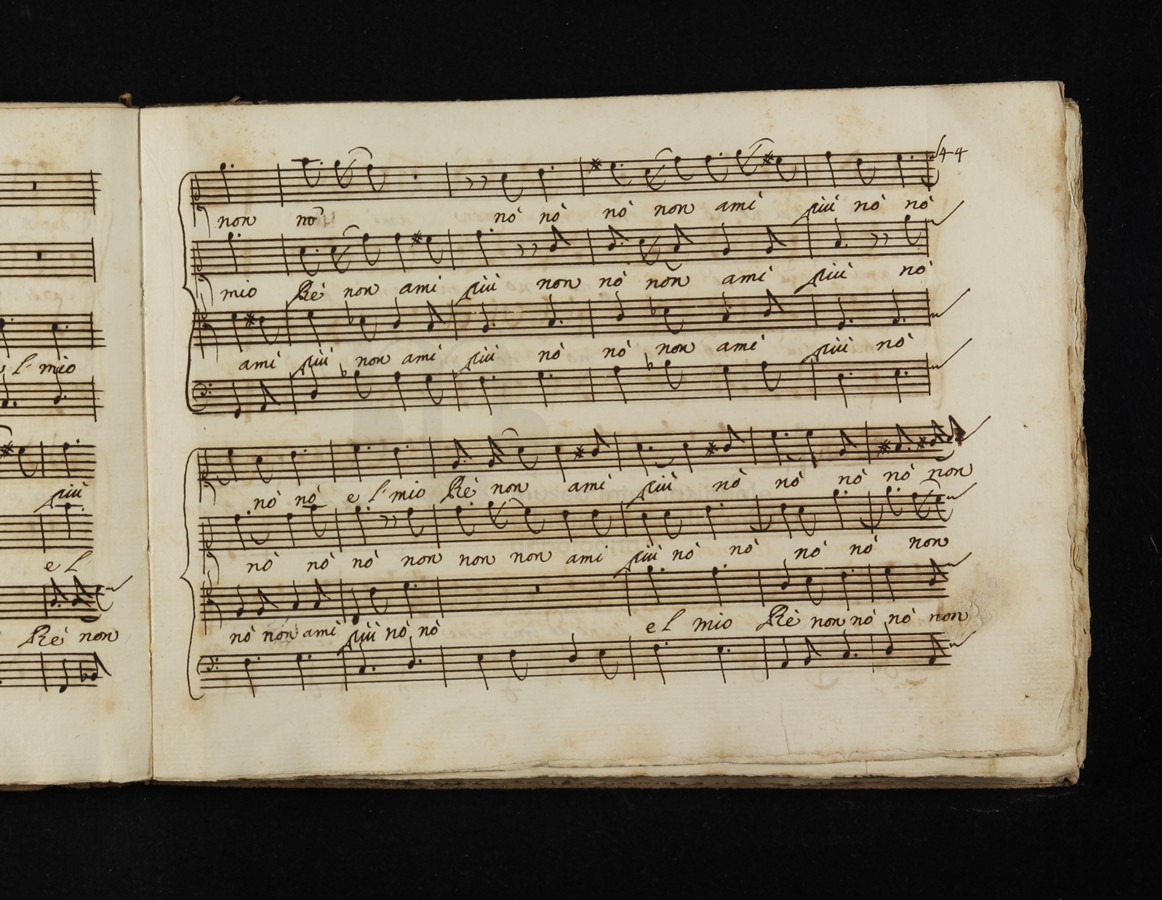 44
non no nò nò nò non ami più nò nò
mio Rè non ami più non nò non ami più nò
l mio
ami più non ami più nò nò non ami più nò
più
nò nò e l mio Rè non ami più nò nò nò nò non
e l
nò nò nò non non non ami più nò nò nò nò non
Rè non
nò non ami più nò nò e l mio Rè non nò nò non